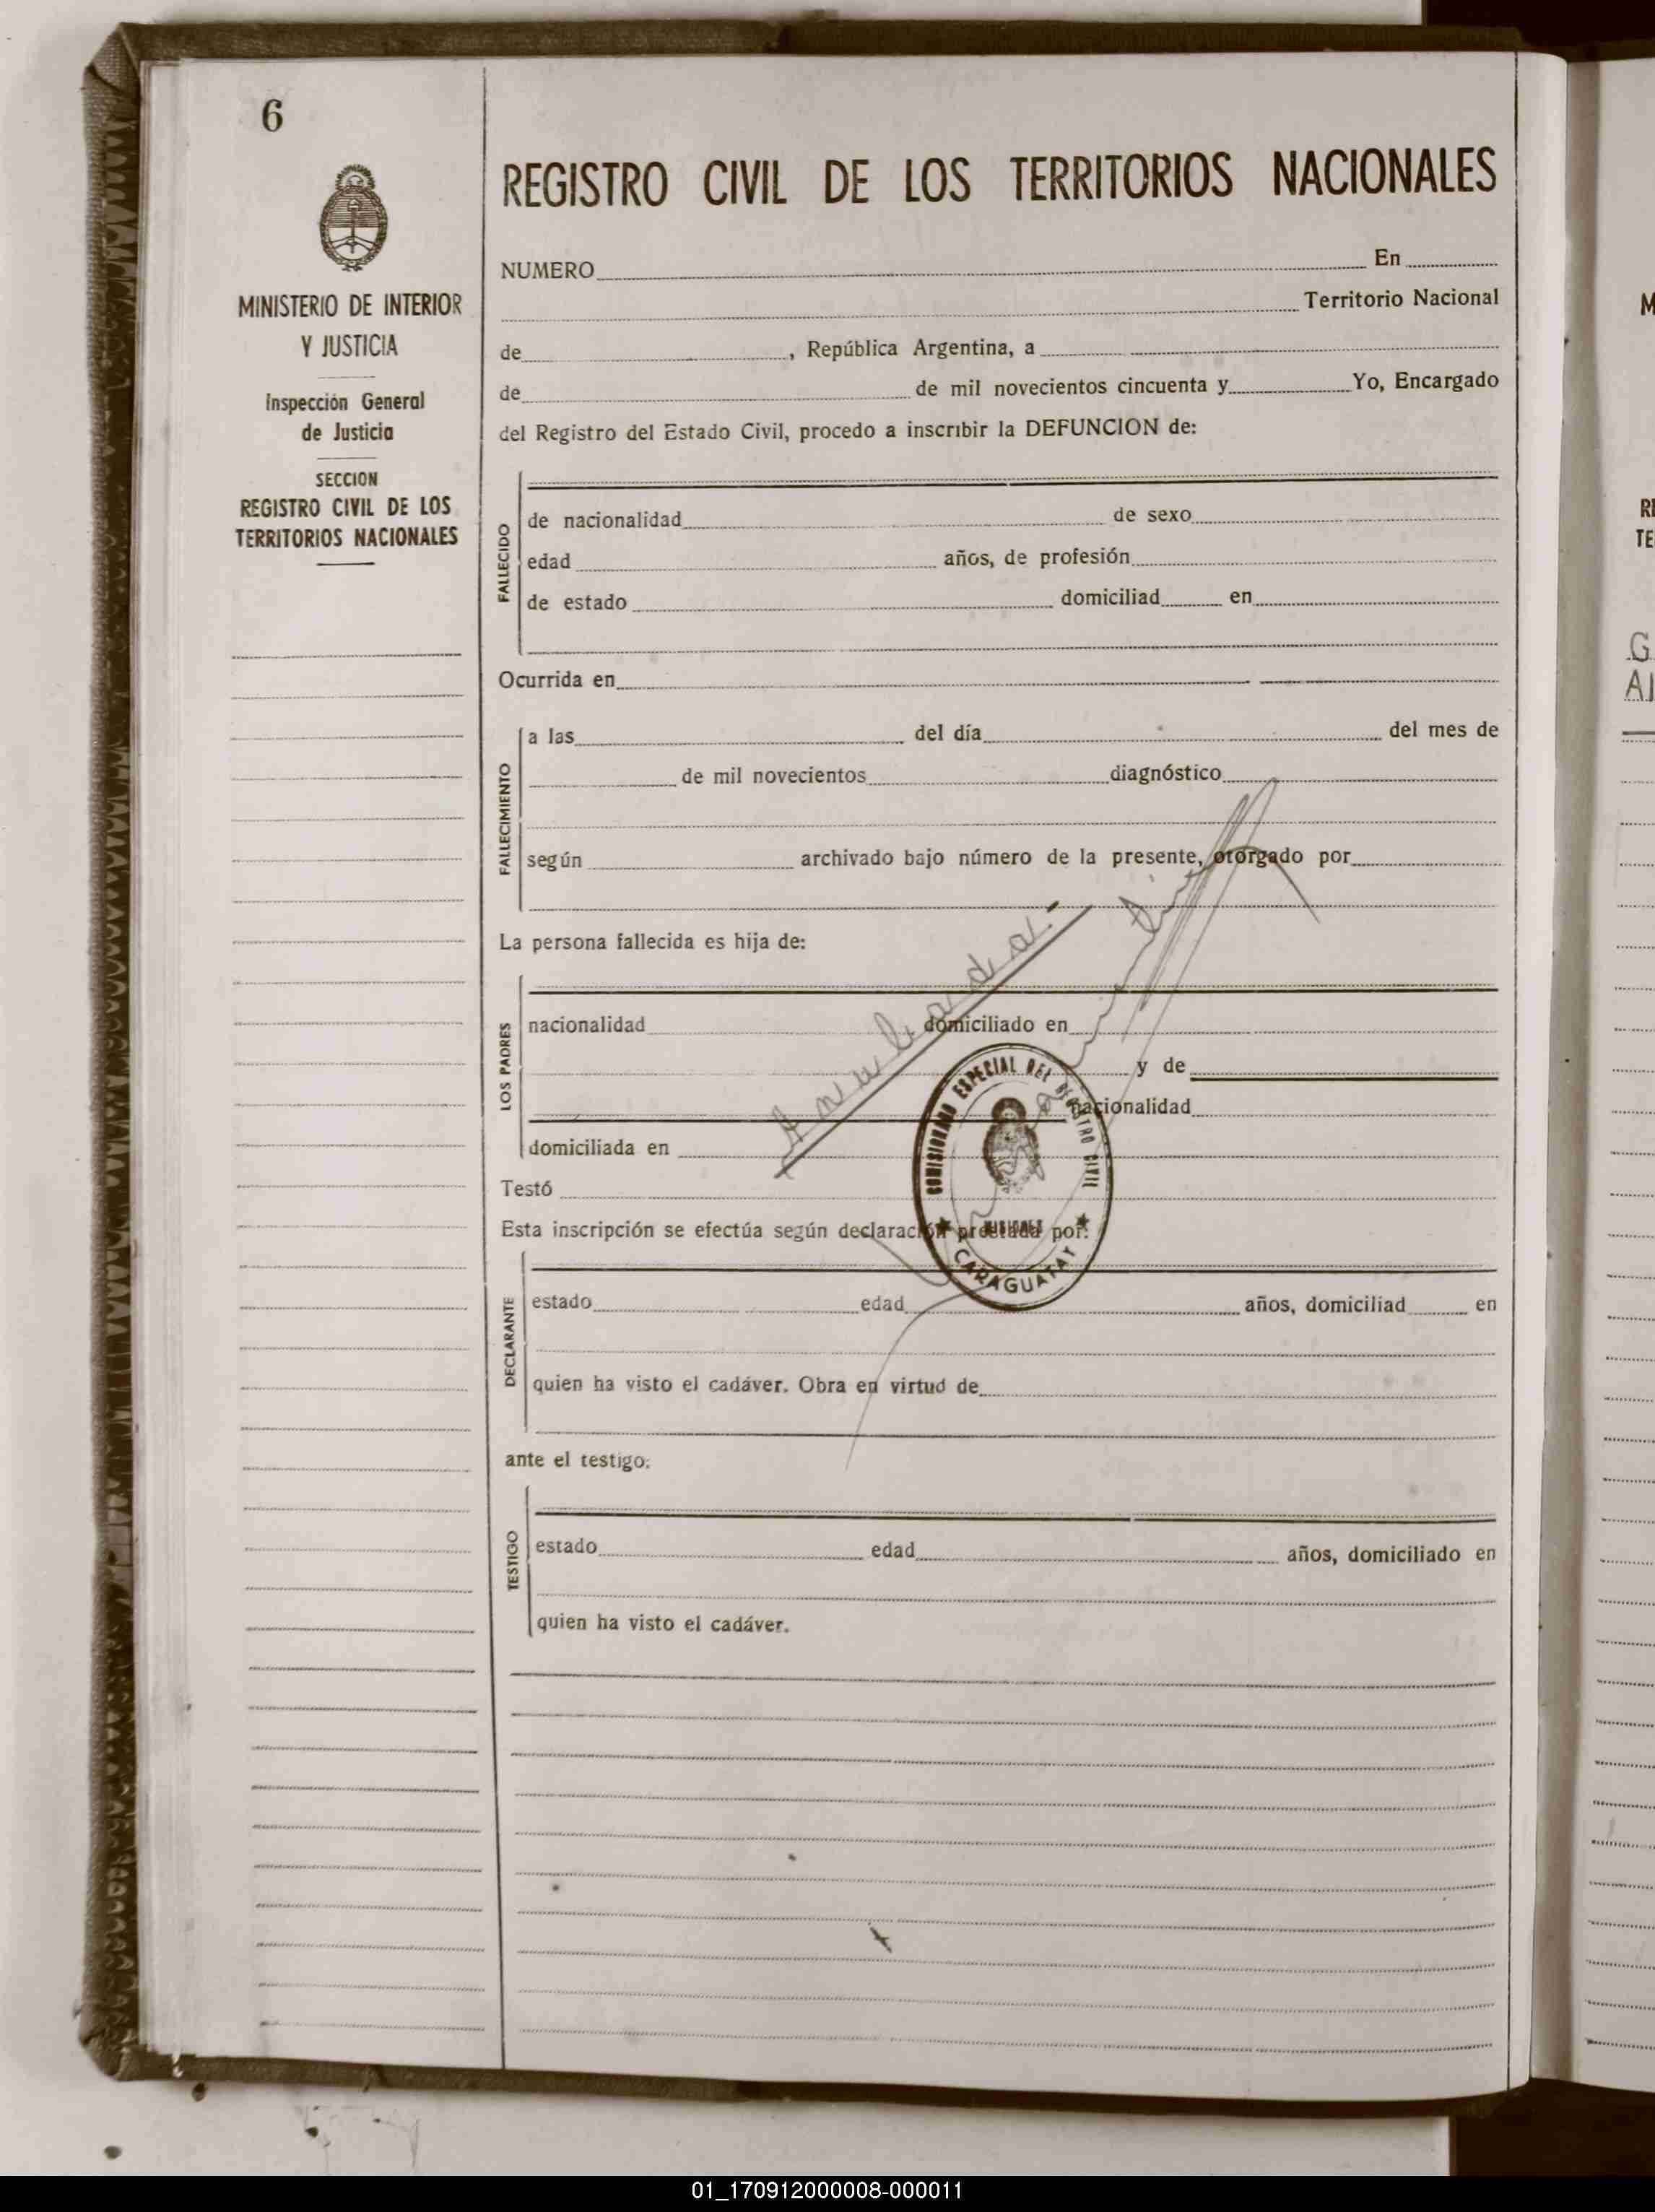 6
MINISTERIO DE INTERIOR
Y JUSTICIA
Inspección General
de Justicia
SECCION
REGISTRO CIVIL DE LOS
TERRITORIOS NACIONALES
REGISTRO CIVIL DE LOS TERRITORIOS NACIONALES
NUMERO En
Territorio Nacional
de , República Argentina, a
de de mil novecientos cincuenta y Yo, Encargado
del Registro del Estado Civil, procedo a inscribir la DEFUNCION de:
FALLECIDO
de nacionalidad de sexo
edad años, de profesión
de estado domiciliad en
Ocurrida en
FALLECIMIENTO
a las del día del mes de
de mil novecientos diagnóstico
según archivado bajo número de la presente, otorgado por
La persona fallecida es hija de:
LOS PADRES
nacionalidad domiciliado en
y de
nacionalidad
domiciliada en
Anulada.
Testó
Esta inscripción se efectúa según declaración prestada por:
COMISIONADO ESPECIAL DEL REGISTRO CIVIL
MISIONES
CARAGUATAY
DECLARANTE
estado edad años, domiciliad en
quien ha visto el cadáver. Obra en virtud de
ante el testigo:
TESTIGO
estado edad años, domiciliado en
quien ha visto el cadáver.
G
01_170912000008-000011